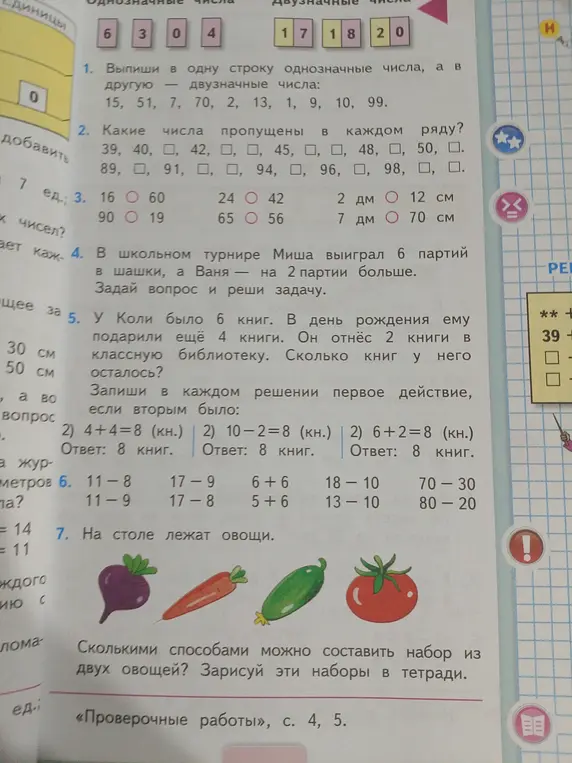 Однозначные числа Двузначные числа
6 3 0 4 17 18 20
1. Выпиши в одну строку однозначные числа, а в
другую — двузначные числа:
15, 51, 7, 70, 2, 13, 1, 9, 10, 99.
2. Какие числа пропущены в каждом ряду?
39, 40, □, 42, □, □, 45, □, □, 48, □, 50, □.
89, □, 91, □, □, 94, □, 96, □, 98, □, □.
3. 16 ○ 60 24 ○ 42 2 дм ○ 12 см
90 ○ 19 65 ○ 56 7 дм ○ 70 см
4. В школьном турнире Миша выиграл 6 партий
в шашки, а Ваня — на 2 партии больше.
Задай вопрос и реши задачу.
5. У Коли было 6 книг. В день рождения ему
подарили ещё 4 книги. Он отнёс 2 книги в
классную библиотеку. Сколько книг у него
осталось?
Запиши в каждом решении первое действие,
если вторым было:
2) 4+4=8 (кн.) 2) 10−2=8 (кн.) 2) 6+2=8 (кн.)
Ответ: 8 книг. Ответ: 8 книг. Ответ: 8 книг.
6. 11−8 17−9 6+6 18−10 70−30
11−9 17−8 5+6 13−10 80−20
7. На столе лежат овощи.
Сколькими способами можно составить набор из
двух овощей? Зарисуй эти наборы в тетради.
«Проверочные работы», с. 4, 5.
единицы
0
добавить
7 ед.;
чисел?
ает каж-
щее за
30 см
50 см
, а во
вопрос
а жур-
метров
ла?
= 14
= 11
ждого
ию с
лома-
ед.;
Н
РЕ
** +
39 +
□ -
□ -